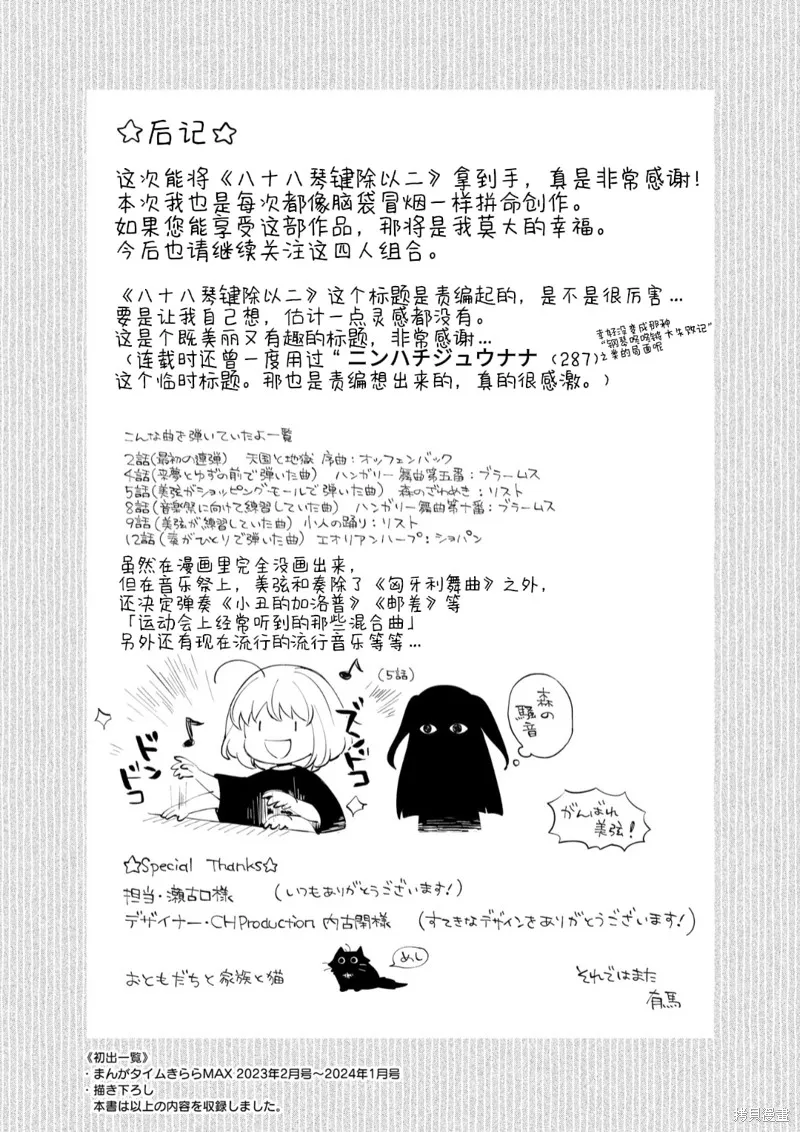 ☆后记☆
这次能将《八十八琴键除以二》拿到手，真是非常感谢！
本次我也是每次都像脑袋冒烟一样拼命创作。
如果您能享受这部作品，那将是我莫大的幸福。
今后也请继续关注这四人组合。
《八十八琴键除以二》这个标题是责编起的，是不是很厉害…
要是让我自己想，估计一点灵感都没有。
这是个既美丽又有趣的标题，非常感谢…
（连载时还曾一度用过“ニンハチジュウナナ（287）
这个临时标题。那也是责编想出来的，真的很感激。）
幸好没变成那种
“钢琴呜呜锵大失败记”
之类的局面呢
こんな曲を弾いていたよ一覧
2話(最初の連弾) 天国と地獄 序曲：オッフェンバック
4話(来夢とゆずの前で弾いた曲) ハンガリー舞曲第五番：ブラームス
5話(美弦がショッピングモールで弾いた曲) 森のざわめき：リスト
8話(音楽祭に向けて練習していた曲) ハンガリー舞曲第十番：ブラームス
9話(美弦が練習していた曲) 小人の踊り：リスト
12話(奏がひとりで弾いた曲) エオリアンハープ：ショパン
虽然在漫画里完全没画出来，
但在音乐祭上，美弦和奏除了《匈牙利舞曲》之外，
还决定弹奏《小丑的加洛普》《邮差》等
「运动会上经常听到的那些混合曲」
另外还有现在流行的流行音乐等等…
ドンドコ
ズンドコ
(5話)
森の
騒音
がんばれ
美弦！
☆Special Thanks☆
担当・瀬古口様 (いつもありがとうございます！)
デザイナー・CHProduction 内古閑様 (すてきなデザインをありがとうございます！)
おともだちと家族と猫
めし
それではまた
有馬
《初出一覧》
・まんがタイムきららMAX 2023年2月号～2024年1月号
・描き下ろし
本書は以上の内容を収録しました。
拷貝漫畫